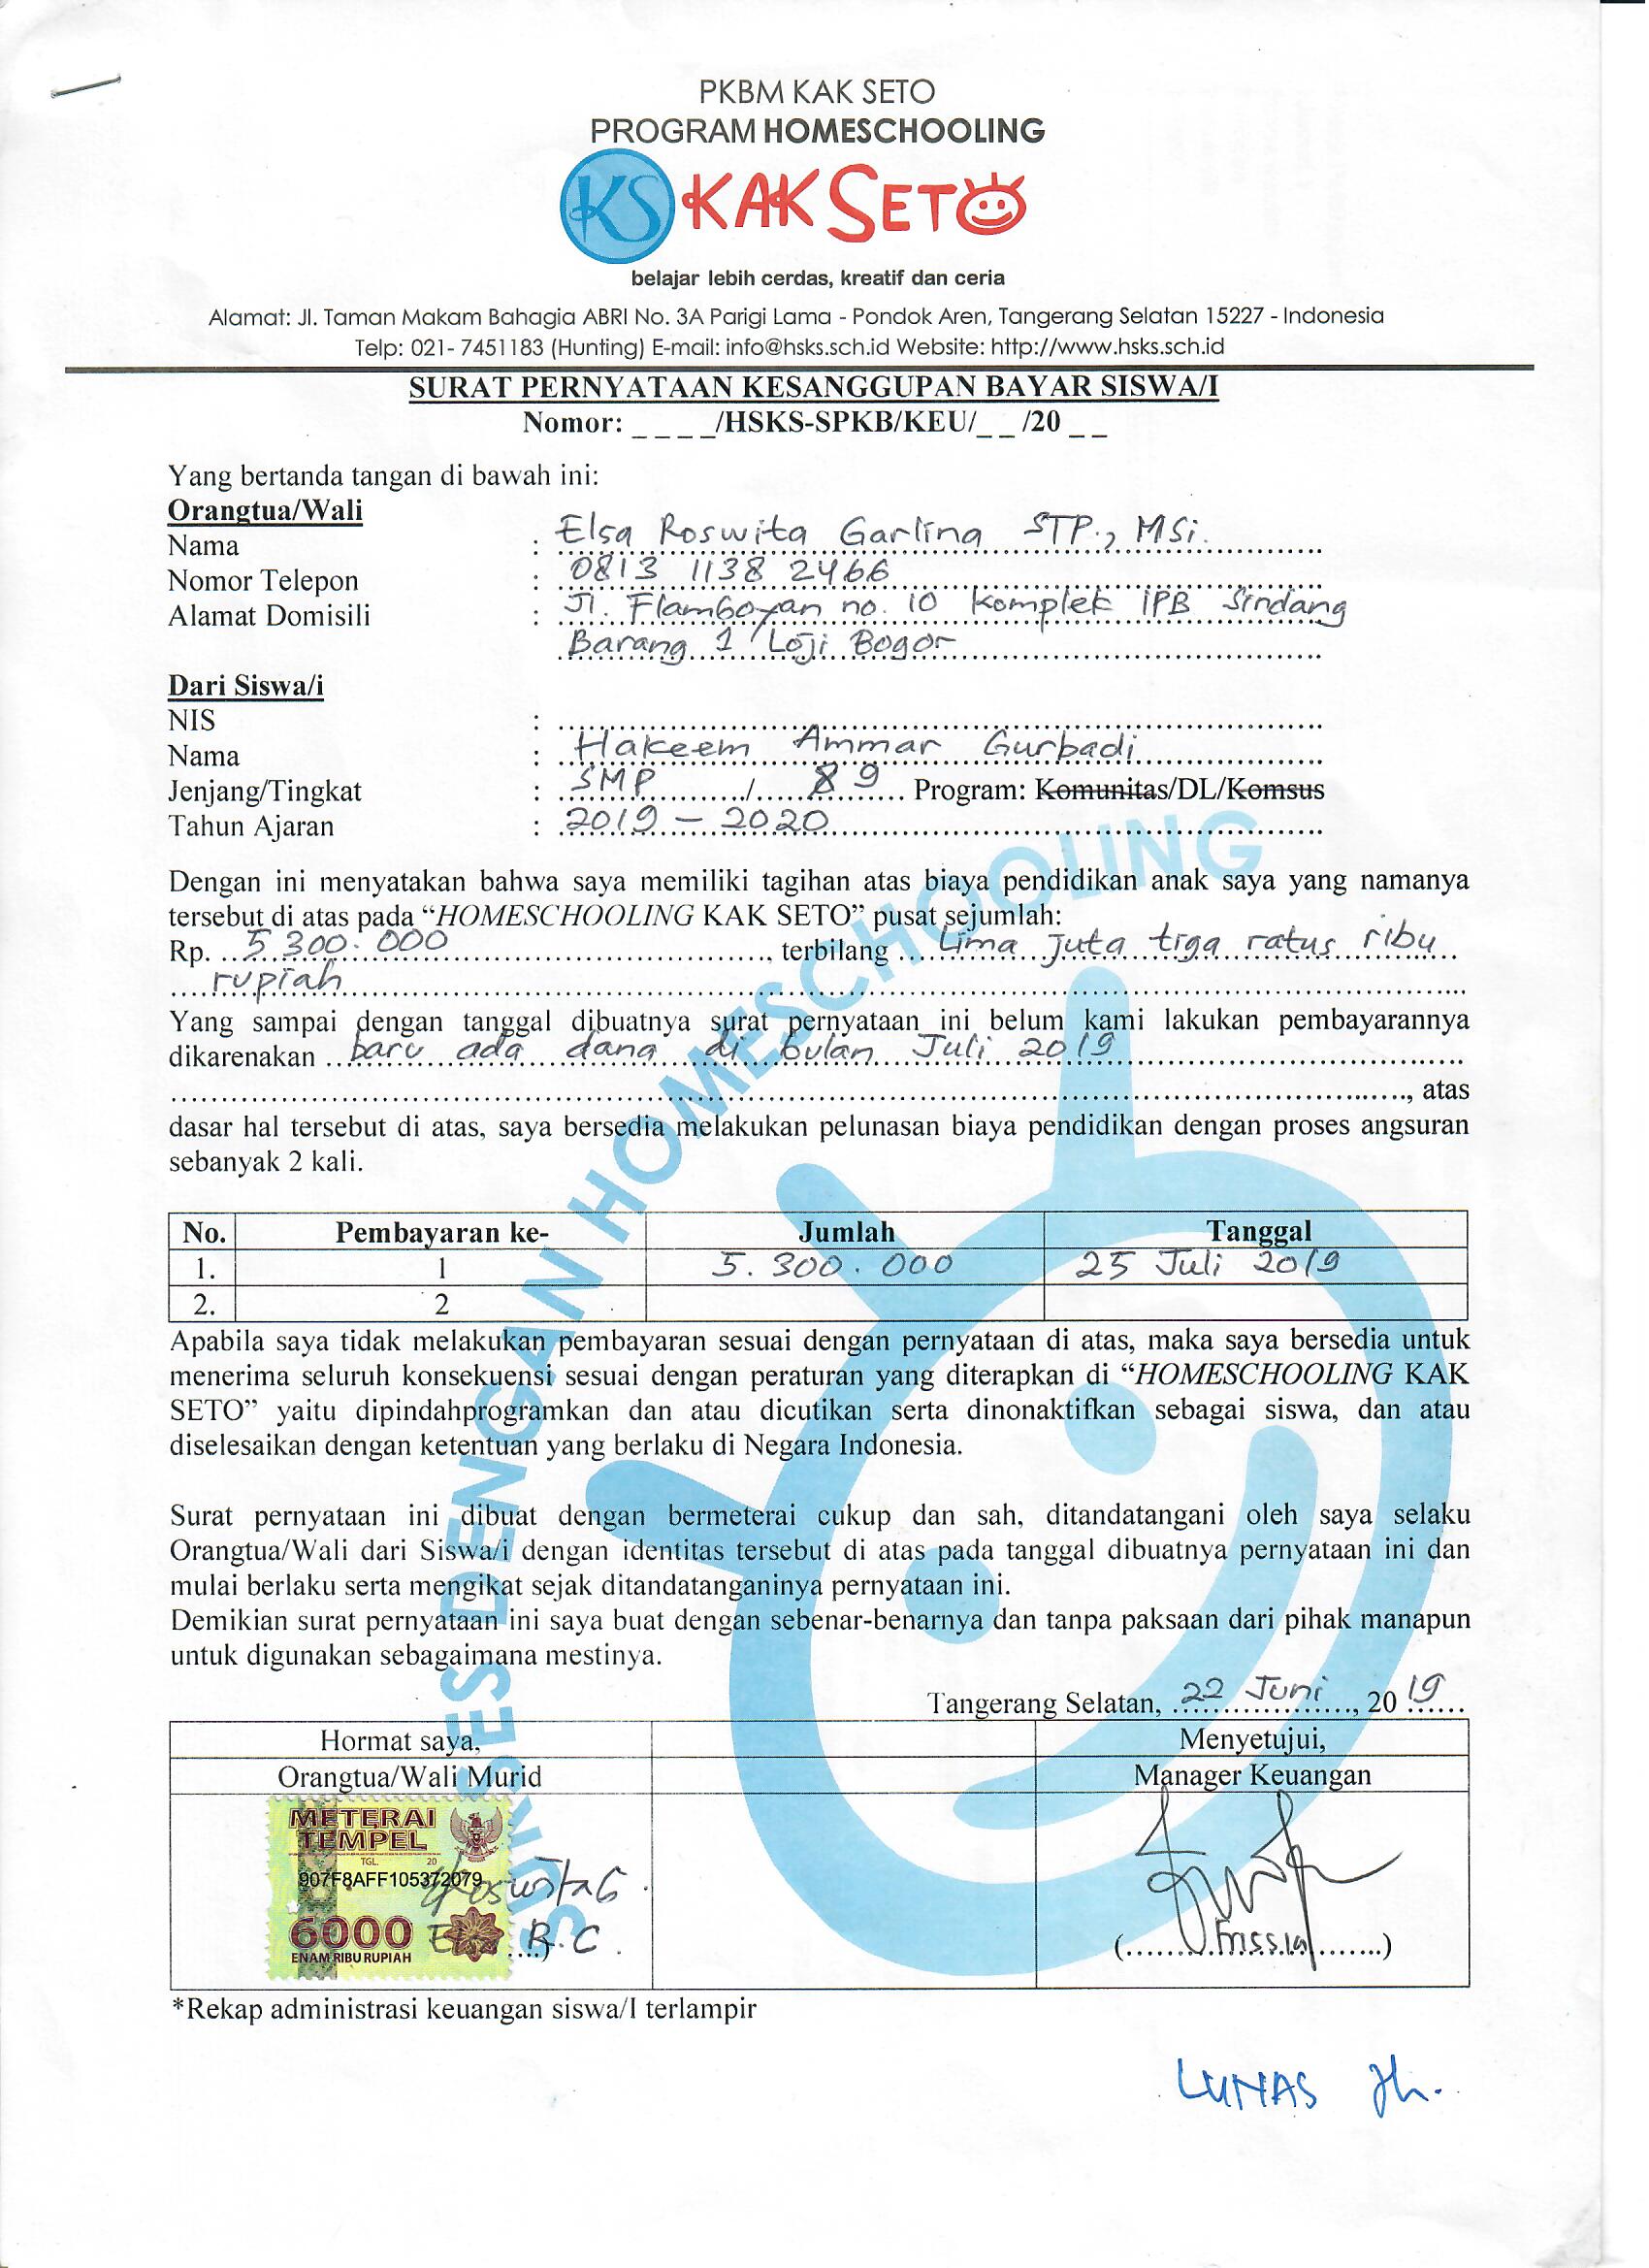 PKBM KAK SETO
PROGRAM HOMESCHOOLING
KS KAK SETO
belajar lebih cerdas, kreatif dan ceria
Alamat: Jl. Taman Makam Bahagia ABRI No. 3A Parigi Lama - Pondok Aren, Tangerang Selatan 15227 - Indonesia
Telp: 021- 7451183 (Hunting) E-mail: info@hsks.sch.id Website: http://www.hsks.sch.id
SURAT PERNYATAAN KESANGGUPAN BAYAR SISWA/I
Nomor: _ _ _ _/HSKS-SPKB/KEU/_ _ /20 _ _
Yang bertanda tangan di bawah ini:
Orangtua/Wali
Nama : Elsa Roswita Garlina STP., MSi.
Nomor Telepon : 0813 1138 2466
Alamat Domisili : Jl. Flamboyan no. 10 Komplek IPB Sindang
Barang 1 Loji Bogor
Dari Siswa/i
NIS :
Nama : Hakeem Ammar Gurbadi
Jenjang/Tingkat : SMP / 8 9 Program: Komunitas/DL/Komsus
Tahun Ajaran : 2019 – 2020
Dengan ini menyatakan bahwa saya memiliki tagihan atas biaya pendidikan anak saya yang namanya
tersebut di atas pada “HOMESCHOOLING KAK SETO” pusat sejumlah:
Rp. 5 300.000, terbilang Lima juta tiga ratus ribu
rupiah
Yang sampai dengan tanggal dibuatnya surat pernyataan ini belum kami lakukan pembayarannya
dikarenakan baru ada dana di bulan Juli 2019
, atas
dasar hal tersebut di atas, saya bersedia melakukan pelunasan biaya pendidikan dengan proses angsuran
sebanyak 2 kali.
No. Pembayaran ke- Jumlah Tanggal
1. 1 5.300.000 25 Juli 2019
2. 2
Apabila saya tidak melakukan pembayaran sesuai dengan pernyataan di atas, maka saya bersedia untuk
menerima seluruh konsekuensi sesuai dengan peraturan yang diterapkan di “HOMESCHOOLING KAK
SETO” yaitu dipindahprogramkan dan atau dicutikan serta dinonaktifkan sebagai siswa, dan atau
diselesaikan dengan ketentuan yang berlaku di Negara Indonesia.
Surat pernyataan ini dibuat dengan bermeterai cukup dan sah, ditandatangani oleh saya selaku
Orangtua/Wali dari Siswa/i dengan identitas tersebut di atas pada tanggal dibuatnya pernyataan ini dan
mulai berlaku serta mengikat sejak ditandatanganinya pernyataan ini.
Demikian surat pernyataan ini saya buat dengan sebenar-benarnya dan tanpa paksaan dari pihak manapun
untuk digunakan sebagaimana mestinya.
Tangerang Selatan, 22 Juni, 2019
Hormat saya, Menyetujui,
Orangtua/Wali Murid Manager Keuangan
METERAI
TEMPEL
TGL. 20
907F8AFF105372079
6000
ENAM RIBU RUPIAH
*Rekap administrasi keuangan siswa/I terlampir
LUNAS
SUKSES DENGAN HOMESCHOOLING